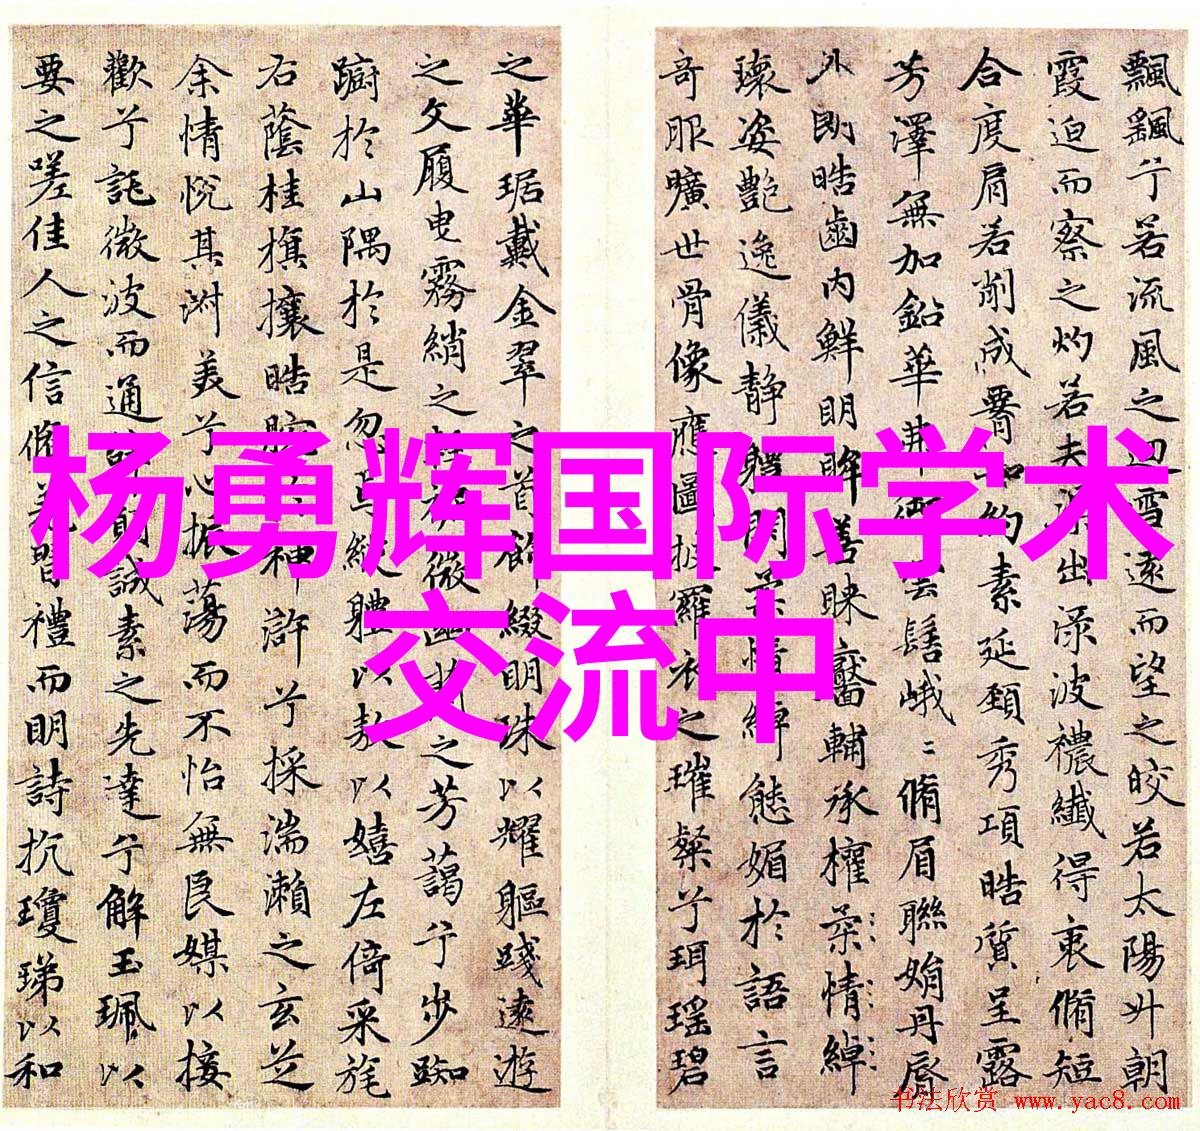 飄飖兮若流風之迴雪遠而望之皎若太陽升朝
霞迫而察之灼若夫渠出渌波穠纖得衷脩短
合度肩若削成腰如約素延頸秀項皓質呈露
芳澤無加鉛華弗御雲髻峨〻脩眉聯娟丹脣
外朗皓齒內鮮明眸善睞靨輔承權柔情綽
瓌姿艷逸儀靜體閑柔情綽態媚於語言
奇服曠世骨像應圖披羅衣之璀粲兮珥瑤碧
之華琚戴金翠之首飾綴明珠以耀軀踐遠遊
之文履曳霧綃之輕裾微幽蘭之芳藹兮步踟
躕於山隅於是忽焉縱體以敖以嬉左倚采旄
右蔭桂旗攘皓腕於神滸兮採湍瀨之玄芝
余情悅其淑美兮心振蕩而不怡無良媒以接
歡兮託微波而通誠素之先達兮解玉珮以
要之嗟佳人之信脩羌習禮而明詩抗瓊珶以和
杨勇辉国际学术
交流中
书法欣赏 www.yac8.com